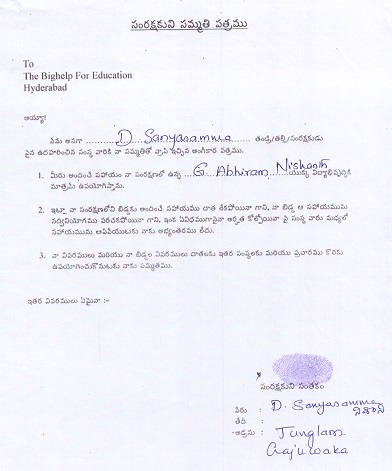 సంరక్షకుని సమ్మతి పత్రము
To
The Bighelp For Education
Hyderabad
అయ్యా!
నేను అనగా D. Sanyasamma తండ్రి/తల్లి/సంరక్షకుడు
పైన ఉదహరించిన సంస్థ వారికి నా సమ్మతితో వ్రాసి ఇచ్చిన అంగీకార పత్రము.
1. మీరు అందించే సహాయం నా సంరక్షణలో ఉన్న G. Abhiram Nishanth యొక్క విద్యాభివృద్ధికి
మాత్రమే ఉపయోగిస్తాను.
2. ఇట్లా నా సంరక్షణలోని బిడ్డకు అందించే సహాయము దాత లేకపోయినా గాని, నా బిడ్డ ఆ సహాయమును
సద్వినియోగము పరచకపోయినా గాని, ఇంక ఏవిధముగానైనా అర్హత కోల్పోయినా పై సంస్థ వారు మధ్యలో
సహాయమును ఆపివేయుటకు నాకు అభ్యంతరము లేదు.
3. నా వివరములు మరియు నా బిడ్డల వివరములు దాతలకు ఇతర సంస్థలకు మరియు ప్రచారము కొరకు
ఉపయోగించుకొనుటకు నాకు సమ్మతము.
ఇతర వివరములు ఏమైనా :-
సంరక్షకుని సంతకం
పేరు : D. Sanyasamma
నిశాని
తేది :
అడ్రసు : Tunglam
Gajuwaka